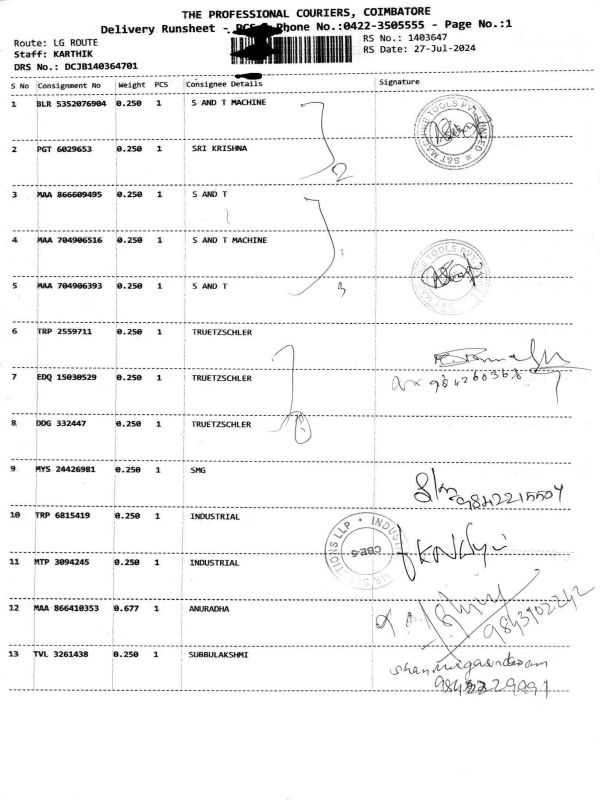 THE PROFESSIONAL COURIERS, COIMBATORE
Delivery Runsheet - Phone No.:0422-3505555 - Page No.:1
Route: LG ROUTE
RS No.: 1403647
Staff: KARTHIK
RS Date: 27-Jul-2024
DRS No.: DCJB140364701
S No Consignment No Weight PCS Consignee Details Signature
1 BLR 5352076904 0.250 1 S AND T MACHINE
2 PGT 6029653 0.250 1 SRI KRISHNA
2
3 MAA 866609495 0.250 1 S AND T
4 MAA 704906516 0.250 1 S AND T MACHINE
5 MAA 704906393 0.250 1 S AND T
3
6 TRP 2559711 0.250 1 TRUETZSCHLER
7 EDQ 15030529 0.250 1 TRUETZSCHLER
8 DDG 332447 0.250 1 TRUETZSCHLER
9 MYS 24426981 0.250 1 SMG
10 TRP 6815419 0.250 1 INDUSTRIAL
CBE-5
11 MTP 3094245 0.250 1 INDUSTRIAL
12 MAA 866410353 0.677 1 ANURADHA
9843902242
13 TVL 3261438 0.250 1 SUBBULAKSHMI